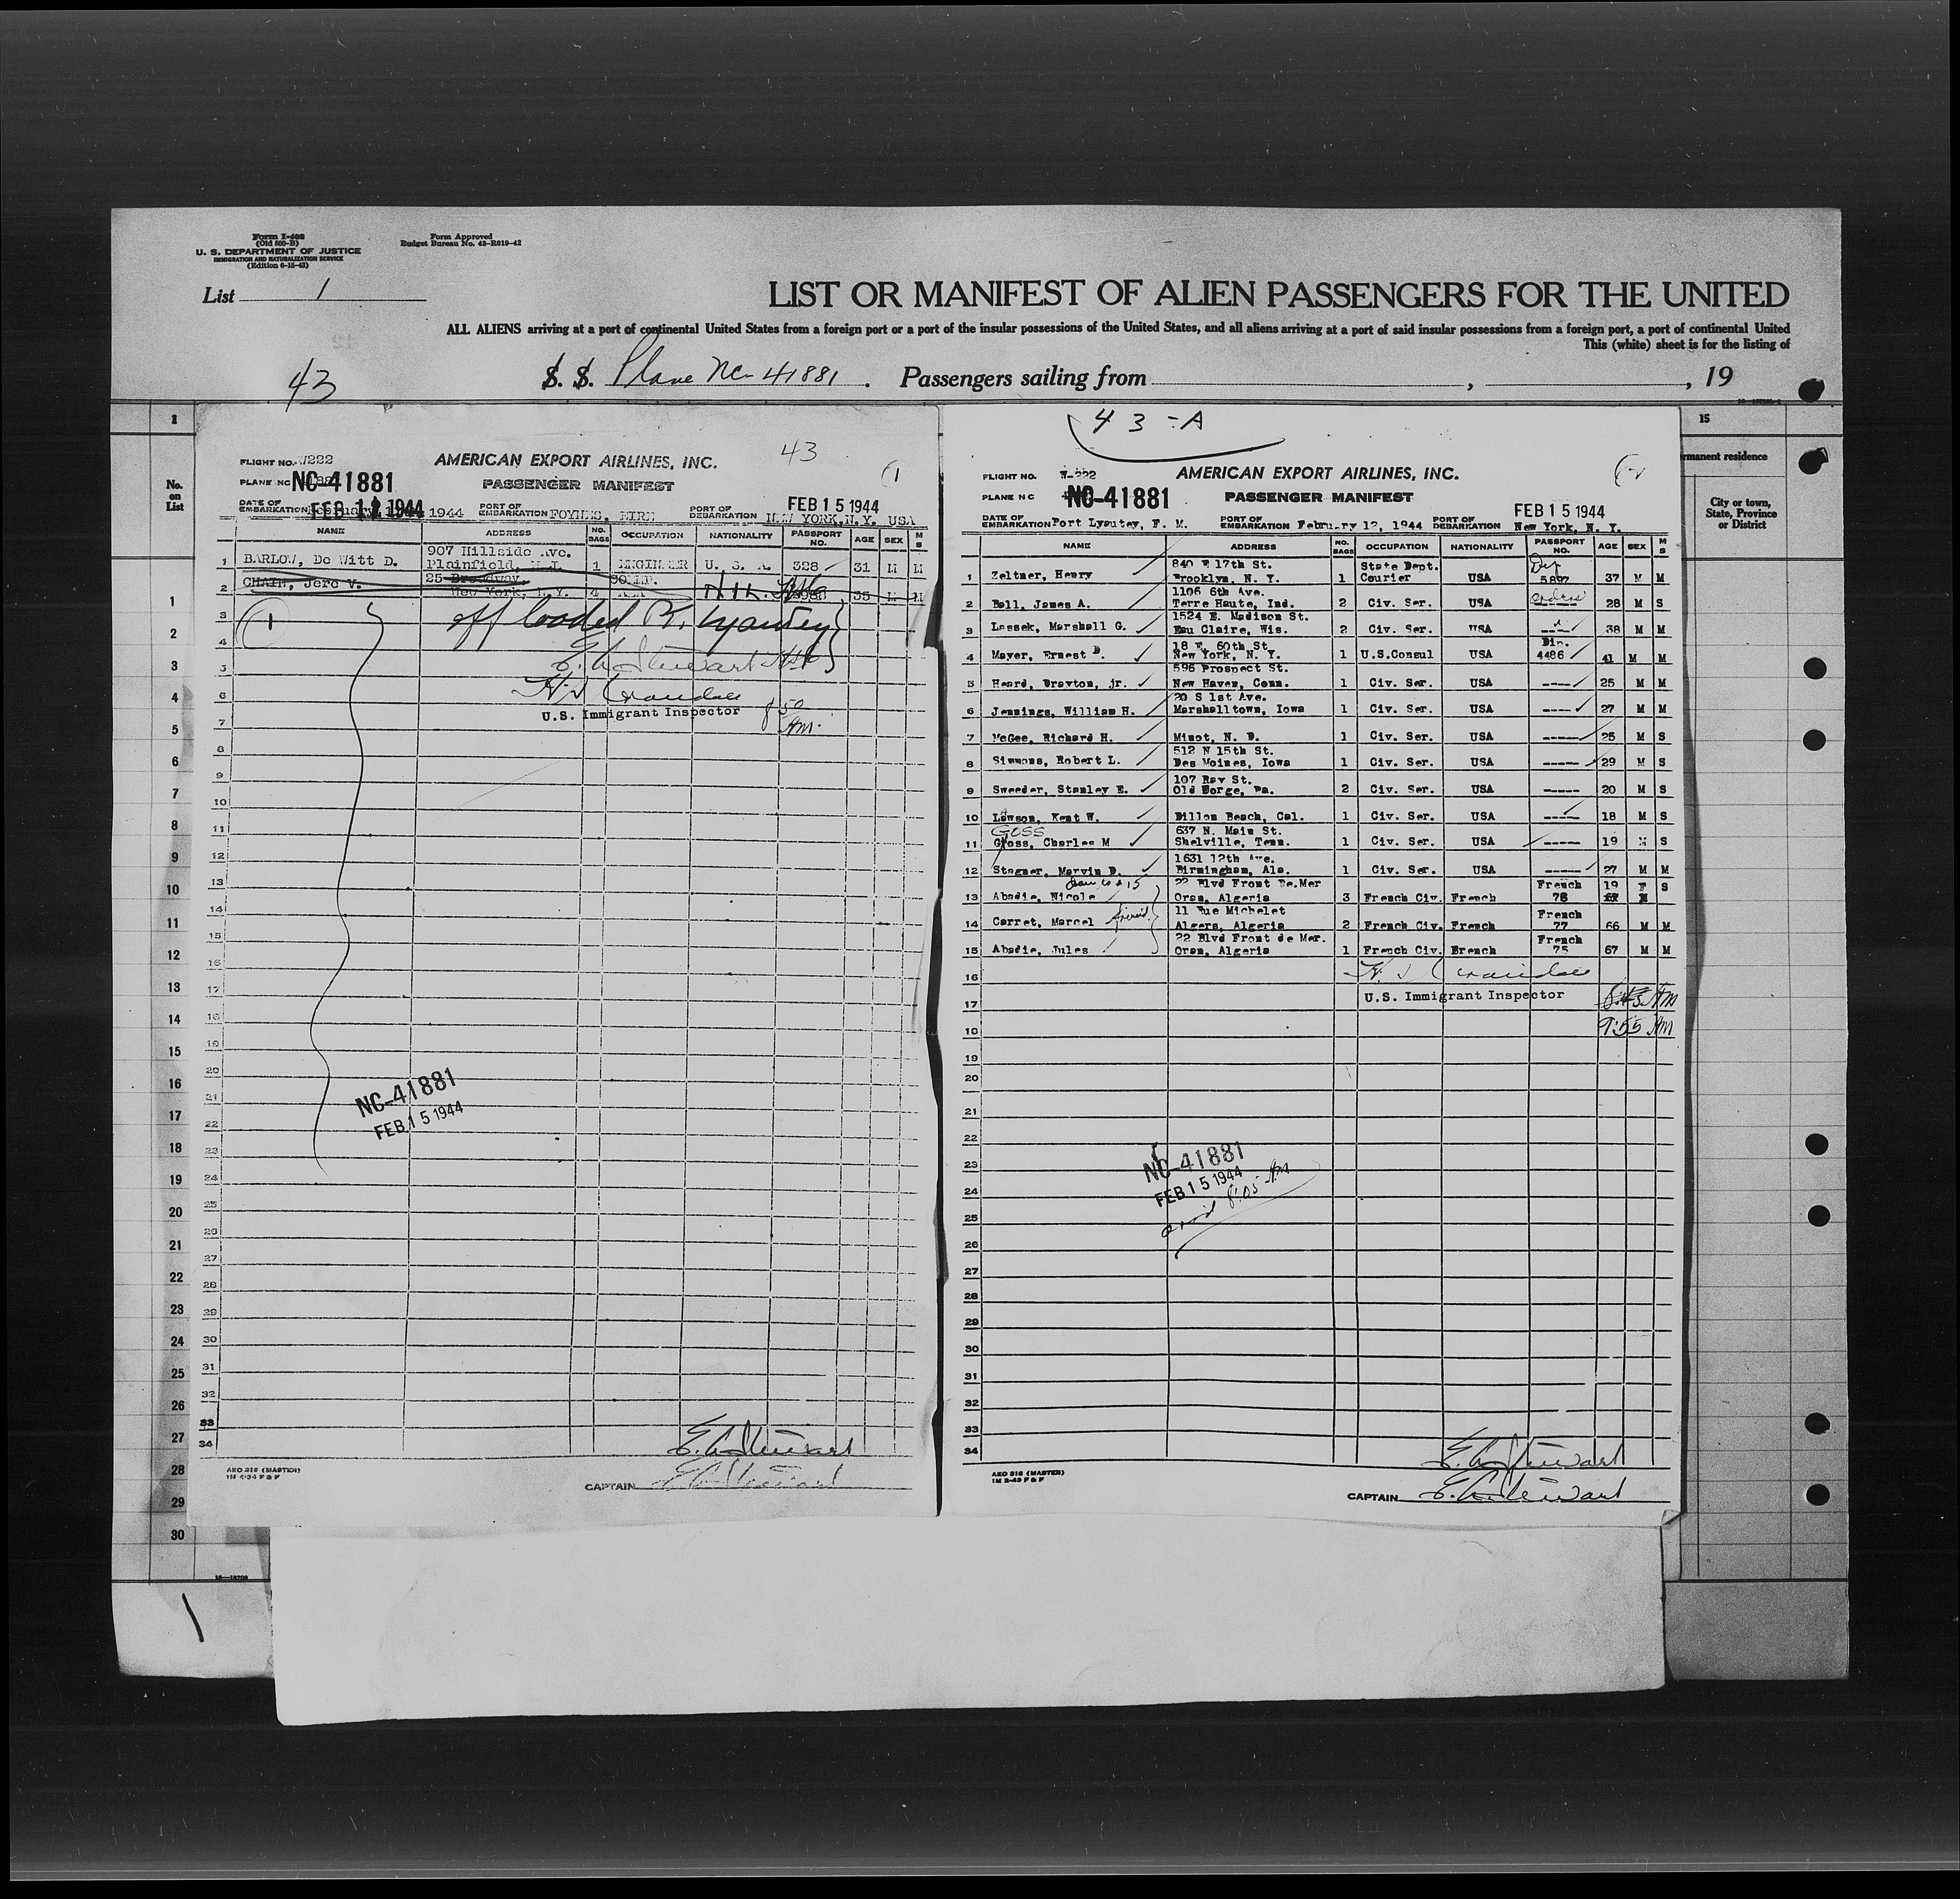 Form I-408
(Old 500-B)
U. S. DEPARTMENT OF JUSTICE
IMMIGRATION AND NATURALIZATION SERVICE
(Edition 6-15-43)
Form Approved
Budget Bureau No. 43-R019-42
List 1
LIST OR MANIFEST OF ALIEN PASSENGERS FOR THE UNITED
ALL ALIENS arriving at a port of continental United States from a foreign port or a port of the insular possessions of the United States, and all aliens arriving at a port of said insular possessions from a foreign port, a port of continental United
This (white) sheet is for the listing of
43
S. S. Plane NC-41881. Passengers sailing from , , 19
1
No. on List
1
2
3
4
5
6
7
8
9
10
11
12
13
14
15
16
17
18
19
20
21
22
23
24
25
26
27
28
29
30
15
rmanent residence
City or town, State, Province or District
43
(1
FLIGHT NO. W222
AMERICAN EXPORT AIRLINES, INC.
PLANE NC NC-41881
PASSENGER MANIFEST
DATE OF EMBARKATION FEB 12 1944 1944 PORT OF EMBARKATION FOYNES, EIRE PORT OF DEBARKATION NEW YORK, N.Y. USA
FEB 15 1944
NAME ADDRESS NO. BAGS OCCUPATION NATIONALITY PASSPORT NO. AGE SEX M S
1 BARLOW, De Witt D. 907 Hillside Ave. Plainfield, N.J. 1 ENGINEER U. S. A. 328 31 M M
2 CHAIN, Jere V. 25 Broadway. New York, N.Y. 4 35 M M
off loaded Pt. Lyautey
E. A. Stewart
H. S. Crandall
U.S. Immigrant Inspector
8 50 Am.
1
3
4
5
6
7
8
9
10
11
12
13
14
15
16
17
18
19
20
21
22
23
24
25
26
27
28
29
30
31
32
33
34
NC-41881
FEB 15 1944
E. A. Stewart
AEO 316 (MASTER)
CAPTAIN E. A. Stewart
43-A
FLIGHT NO. W-222
AMERICAN EXPORT AIRLINES, INC.
PLANE NC NC-41881
PASSENGER MANIFEST
FEB 15 1944
DATE OF EMBARKATION Port Lyautey, F. M. PORT OF EMBARKATION February 12, 1944 PORT OF DEBARKATION New York, N. Y.
NAME ADDRESS NO. BAGS OCCUPATION NATIONALITY PASSPORT NO. AGE SEX M S
1 Zeltner, Henry 840 E 17th St. Brooklyn, N. Y. 1 State Dept. Courier USA 5897 37 M M
2 Ball, James A. 1106 6th Ave. Terre Haute, Ind. 2 Civ. Ser. USA ---- 28 M S
3 Lassek, Marshall G. 1524 E. Madison St. Eau Claire, Wis. 2 Civ. Ser. USA ---- 38 M M
4 Mayer, Ernest D. 18 E. 60th St. New York, N. Y. 1 U.S.Consul USA Dip. 4486 41 M M
5 Heard, Drayton, jr. 596 Prospect St. New Haven, Conn. 1 Civ. Ser. USA ---- 25 M M
6 Jennings, William H. 20 S 1st Ave. Marshalltown, Iowa 1 Civ. Ser. USA ---- 27 M M
7 McGee, Richard H. Minot, N. D. 1 Civ. Ser. USA ----- 25 M S
8 Simmons, Robert L. 512 N 15th St. Des Moines, Iowa 1 Civ. Ser. USA ----- 29 M S
9 Sweeder, Stanley E. 107 Ray St. Old Forge, Pa. 2 Civ. Ser. USA ----- 20 M S
10 Lawson, Kent W. Dillon Beach, Cal. 1 Civ. Ser. USA ----- 18 M S
GOSS
11 Gross, Charles M 637 N. Main St. Shelville, Tenn. 1 Civ. Ser. USA ----- 19 M S
12 Stagner, Marvin D. 1631 12th Ave. Birmingham, Ala. 1 Civ. Ser. USA ----- 27 M M
13 Abadie, Nicole 22 Blvd Front De.Mer Oran, Algeria 3 French Civ. French French 76 19 F S
14 Carret, Marcel 11 Rue Michelet Algers, Algeria 2 French Civ. French French 77 66 M M
15 Abadie, Jules 22 Blvd Front de Mer. Oran, Algeria 1 French Civ. French French 75 67 M M
16
H. S. Crandall
17 U.S. Immigrant Inspector 8:45 Am
9:55 Am
18
19
20
21
22
23
24
25
26
27
28
29
30
31
32
33
34
NC-41881
FEB 15 1944
arrived 8:05 Am
E. A. Stewart
AEO 316 (MASTER)
1M 2-43 F & F
CAPTAIN E. A. Stewart